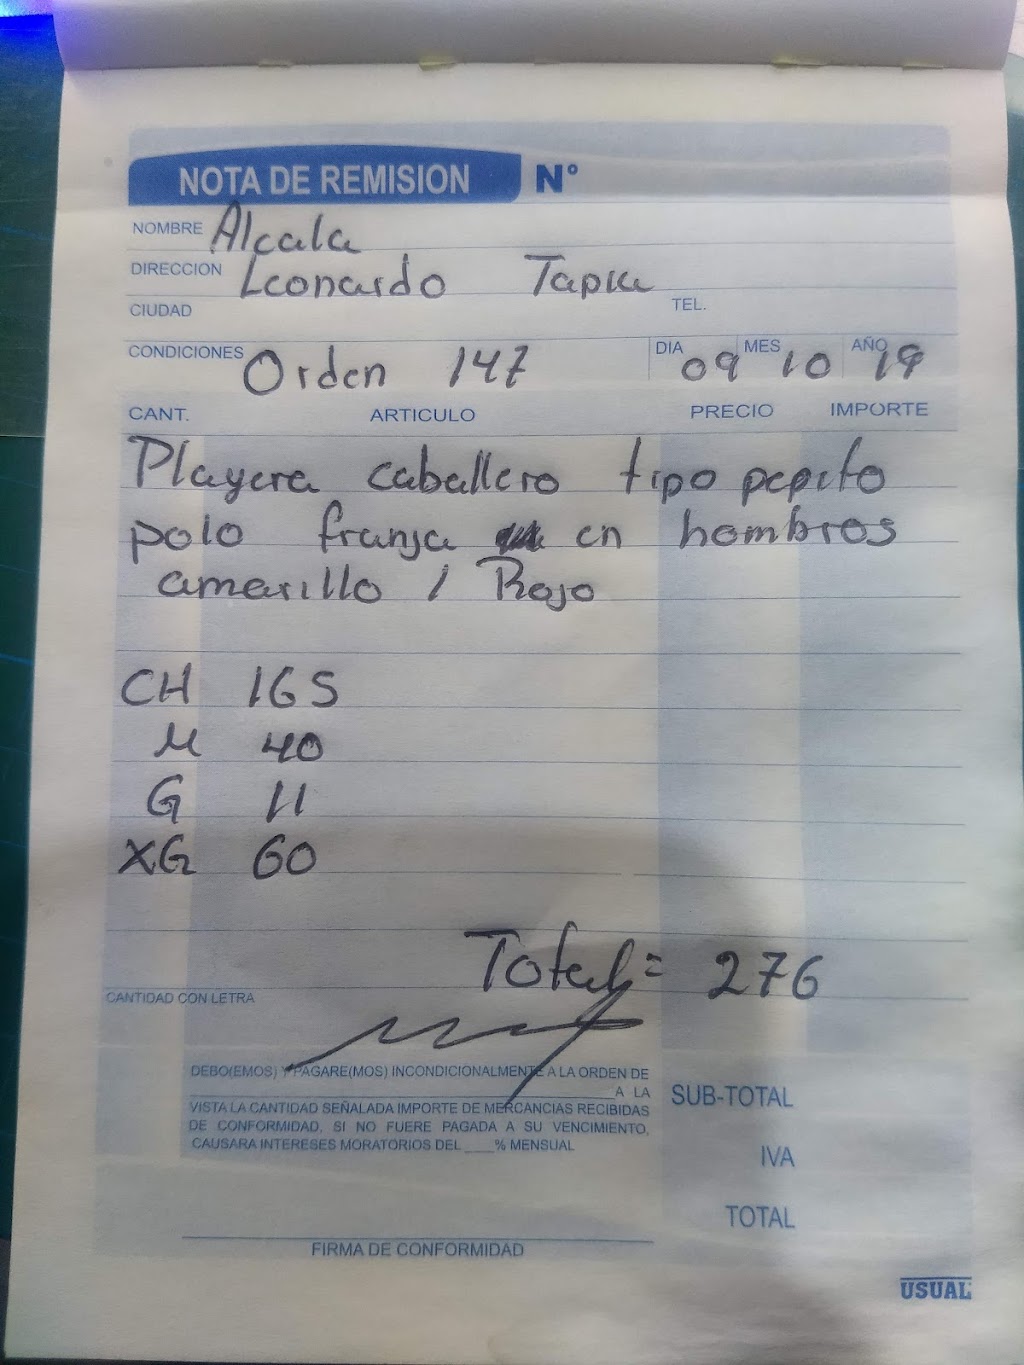 NOTA DE REMISION N°
NOMBRE Alcala
DIRECCION Leonardo Tapia
CIUDAD TEL.
CONDICIONES Orden 147 DIA 09 MES 10 AÑO 19
CANT. ARTICULO PRECIO IMPORTE
Playera caballero tipo pepito
polo franja en hombros
amarillo / Rojo
CH 165
M 40
G 11
XG 60
Total = 276
CANTIDAD CON LETRA
DEBO(EMOS) Y PAGARE(MOS) INCONDICIONALMENTE A LA ORDEN DE
A LA
VISTA LA CANTIDAD SEÑALADA IMPORTE DE MERCANCIAS RECIBIDAS
DE CONFORMIDAD. SI NO FUERE PAGADA A SU VENCIMIENTO,
CAUSARA INTERESES MORATORIOS DEL ____% MENSUAL
SUB-TOTAL
IVA
TOTAL
FIRMA DE CONFORMIDAD
USUAL